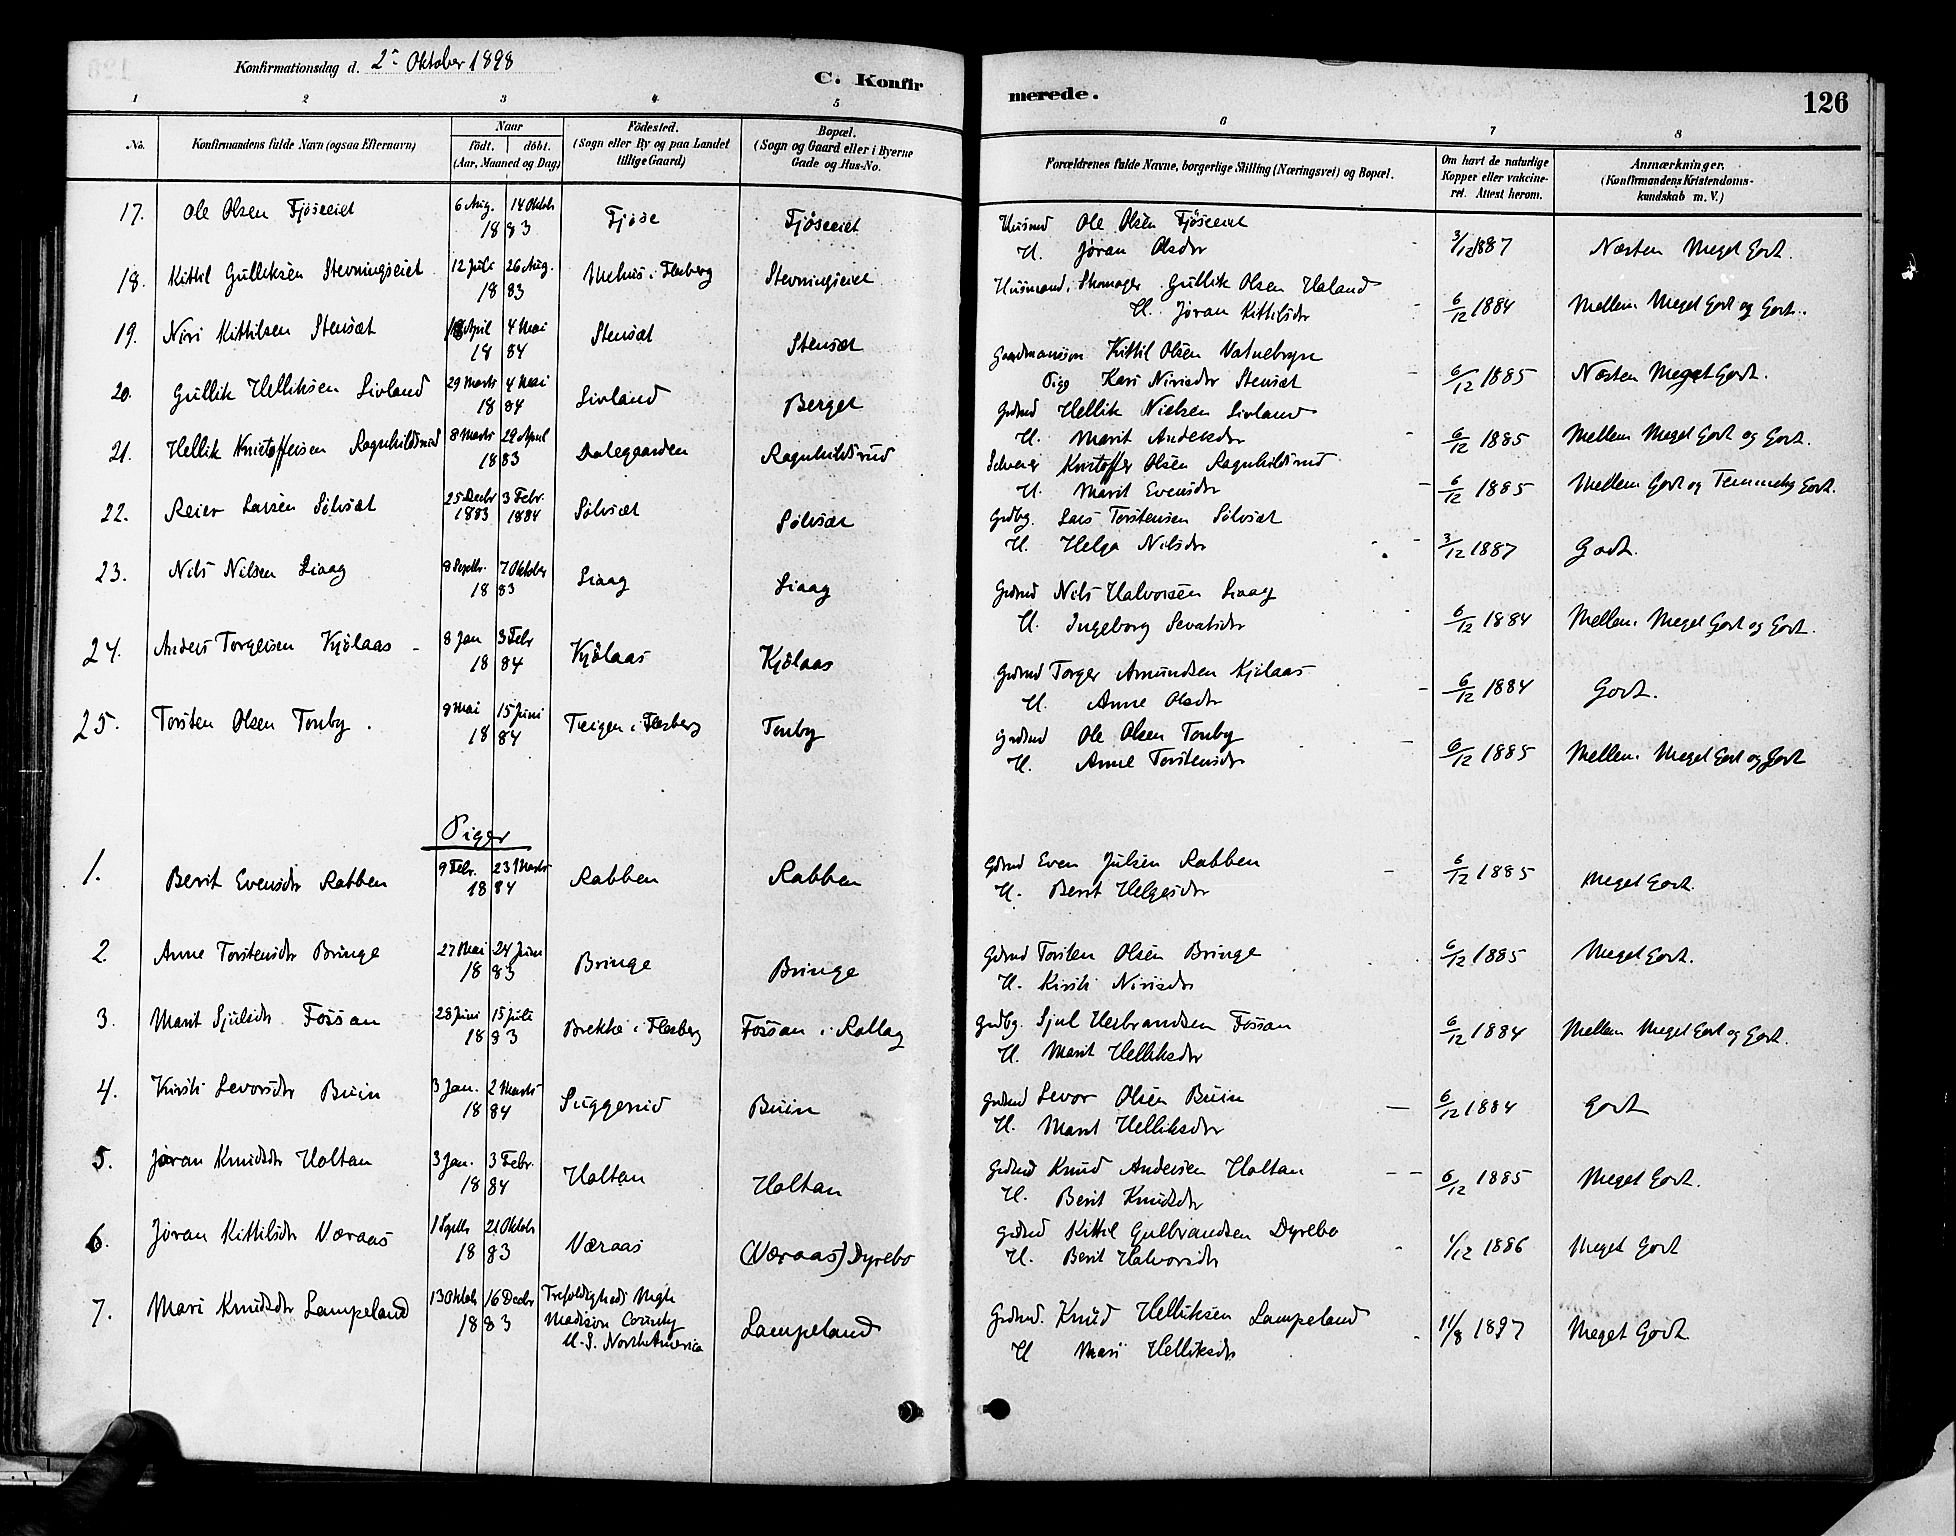 Konfirmationsdag d. 2- Oktober 1898
C. Konfir
merede.
126
1 2 3 4 5 6 7 8
No.
Konfirmandens fulde Navn (ogsaa Efternavn)
Naar
födt. döbt.
(Aar, Maaned og Dag)
Födested.
(Sogn eller By og paa Landet
tillige Gaard)
Bopæl.
(Sogn og Gaard eller i Byerne
Gade og Hus-No.
Forældrenes fulde Navne, borgerlige Stilling (Næringsvei) og Bopæl.
Om havt de naturlige
Kopper eller vakcine-
ret. Attest herom.
Anmærkninger.
(Konfirmandens Kristendoms-
kundskab m. V.)
17. Ole Olsen Fjöseeiet 6 Aug. 14 Oktob 1883 Fjöse Fjöseeiet Husmd Ole Olsen Fjöseeiet
H. Jöran Olsdr 3/12 1887 Næsten Meget Godt.
18. Kittil Gulliksen Stevningseiet 12 Juli 26 Aug. 1883 i Flesberg Stevningseiet Husmand, Skomager Gullik Olsen Haland
H. Jöran Kittilsdr 6/12 1884 Mellem Meget Godt og Godt.
19. Niri Kittilsen Stensæt April 4 Mai 1884 Stensæt Stensæt Gaardmansson Kittil Olsen Vatnebryn
Pige Kari Nirisdr Stensæt 6/12 1885 Næsten Meget Godt.
20. Gullik Helliksen Livland 29 Marts 4 Mai 1884 Livland Berget Grdmd Hellik Nielsen Livland
H. Marit Andersdr 6/12 1885 Mellem Meget Godt og Godt.
21. Hellik Kristoffersen Ragnhildsrud 8 Marts 29 April 1883 Dalegaarden Ragnhildsrud Kristoffer Olsen Ragnhildsrud
H. Marit Evensdr 6/12 1885 Mellem Godt og Temmelig Godt.
22. Reier Larsen Sölvsæt 25 Decbr 1883 3 Febr. 1884 Sölvsæt Sölvsæt Grdbg. Lars Torstensen Sölvsæt
H. Helga Nilsdr 3/12 1887 Godt.
23. Nils Nilsen Liaag 8 Septbr. 7 Oktober 1883 Liaag Liaag Grdmd Nils Halvorsen Liaag
H. Ingeborg Sevatsdr 6/12 1884 Mellem Meget Godt og Godt.
24. Anders Torgersen Kjölaas 8 Jan 3 Febr 1884 Kjölaas Kjölaas Grdmd Torger Amundsen Kjölaas
H. Anne Olsdr 6/12 1884 Godt.
25. Torsten Olsen Tonby. 8 Mai 15 Juni 1884 Teigen i Flesberg Tonby Grdmd Ole Olsen Tonby
H. Anne Torstensdr 6/12 1885 Mellem Meget Godt og Godt
Piger
1. Berit Evensdr Rabben 9 Febr. 23 Marts 1884 Rabben Rabben Grdmd Even Julsen Rabben
H. Berit Helgesdr 6/12 1885 Meget Godt.
2. Anne Torstensdr Bringe 27 Mai 24 Juni 1883 Bringe Bringe Grdmd Torsten Olsen Bringe
H. Kirsti Nirisdr 6/12 1885 Meget Godt.
3. Marit Sjulsdr Fossan 28 Juni 15 Juli 1883 Brekke i Flesberg Fossan i Rollag Grdbg. Sjul Herbrandsen Fossan
H. Marit Helliksdr 6/12 1884 Mellem Meget Godt og Godt.
4. Kirsti Levorsdr Buin 3 Jan. 2 Marts 1884 Suggerud Buin Grdmd Levor Olsen Buin
H. Marit Helliksdr 6/12 1884 Godt
5. Jøran Knudsdr Holtan 3 Jan. 3 Febr. 1884 Holtan Holtan Grdmd Knud Andersen Holtan
H. Berit Knudsdr 6/12 1885 Meget Godt.
6. Jøran Kittilsdr Væraas 1 Septbr 21 Oktob 1883 Væraas (Væraas) Dyrebo Grdmd Kittil Gulbrandsen Dyrebo
H. Berit Halvorsdr 1/12 1886 Meget Godt
7. Mari Knudsdr Lampeland 13 Oktob 16 Decbr 1883 Trefoldigheds Mgh
Madison County
U.S. North America Lampeland Grdmd. Knud Helliksen Lampeland
H Mari Helliksdr 11/8 1897 Meget Godt.